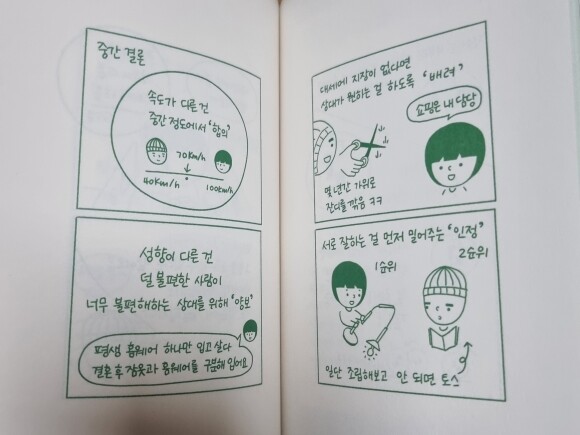 중간 결론
속도가 다른 건
중간 정도에서 '합의'
70km/h
40km/h
100km/h
성향이 다른 건
덜 불편한 사람이
너무 불편해하는 상대를 위해 '양보'
평생 홈웨어 하나만 입고 살다
결혼 후 잠옷과 홈웨어를 구분해 입어요
대세에 지장이 없다면
상대가 원하는 걸 하도록 '배려'
쇼핑은 내 담당
몇 년간 가위로
잔디를 깎음 ㅋㅋ
서로 잘하는 걸 먼저 밀어주는 '인정'
1순위
2순위
일단 조립해보고 안 되면 토스